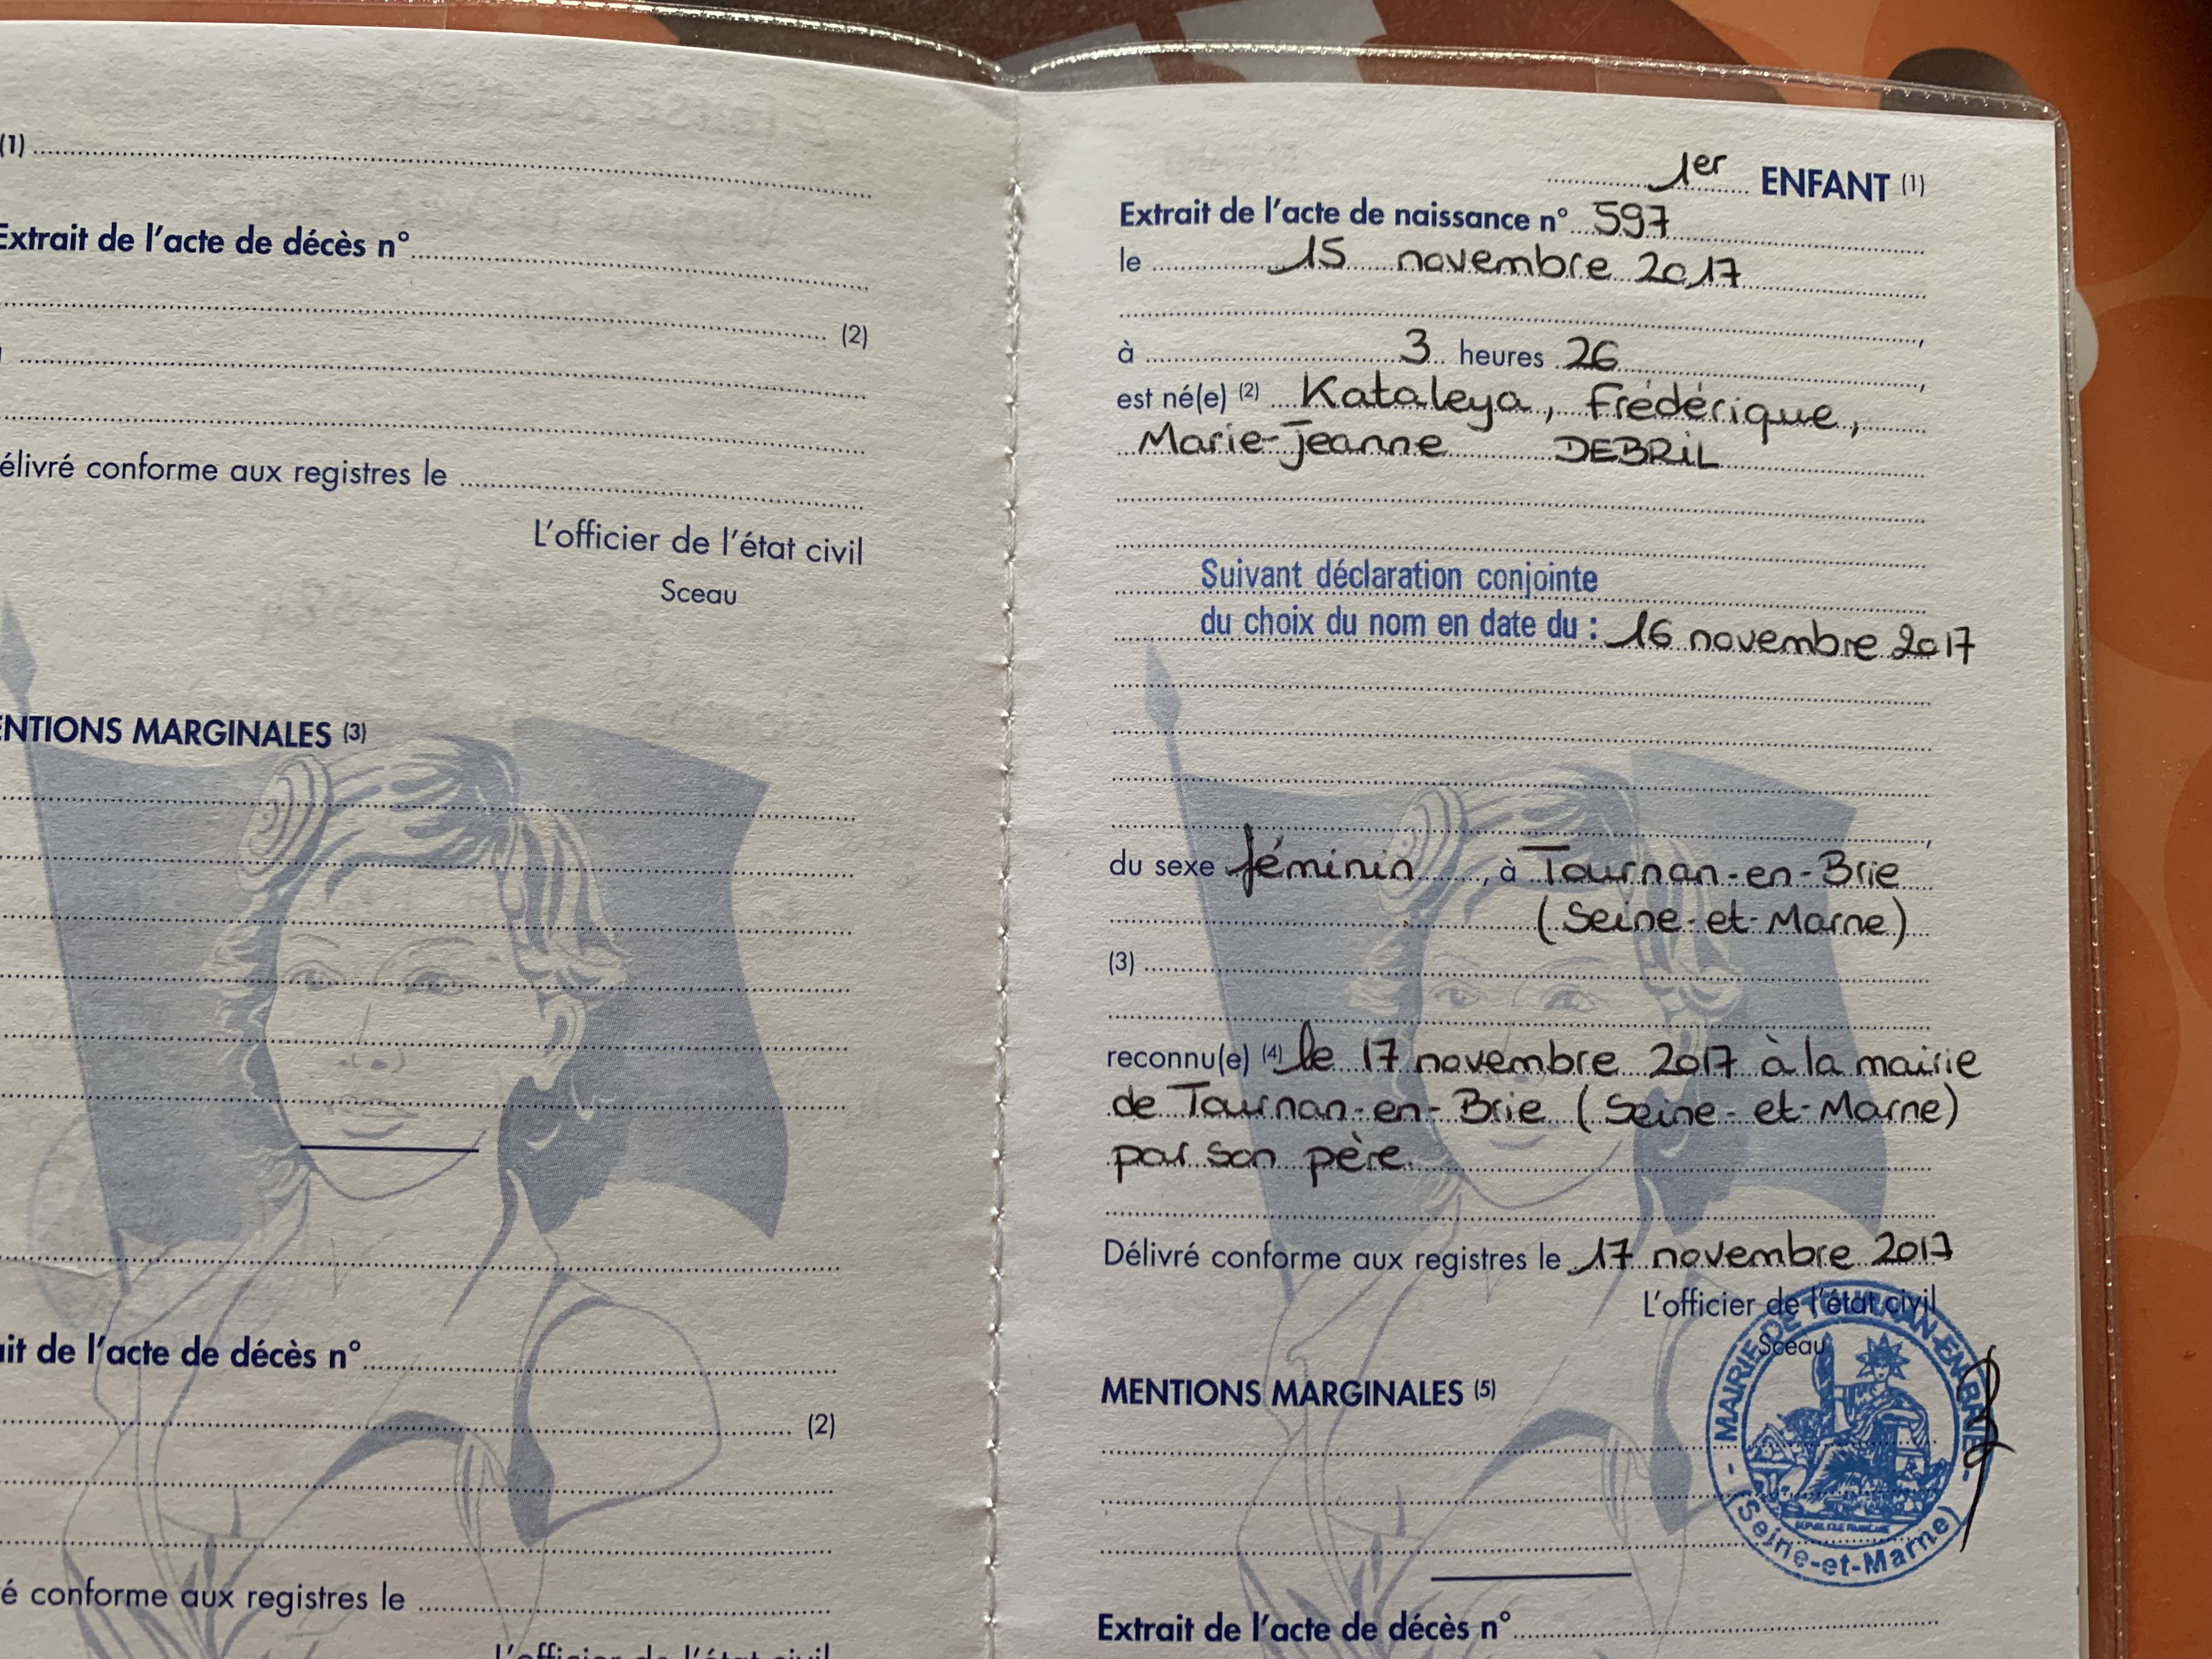 (1)
Extrait de l'acte de décès n°
(2)
élivré conforme aux registres le
L'officier de l'état civil
Sceau
ENTIONS MARGINALES (3)
ait de l'acte de décès n°
(2)
é conforme aux registres le
L'officier de l'état civil
1er ENFANT (1)
Extrait de l'acte de naissance n° 597
le 15 novembre 2017
,
à 3 heures 26 ,
est né(e) (2) Kataleya, Frédérique,
Marie-Jeanne DEBRIL
Suivant déclaration conjointe
du choix du nom en date du : 16 novembre 2017
,
du sexe féminin , à Tournan-en-Brie
(Seine-et-Marne)
(3)
reconnu(e) (4) le 17 novembre 2017 à la mairie
de Tournan-en-Brie (Seine-et-Marne)
par son père.
Délivré conforme aux registres le 17 novembre 2017
L'officier de l'état civil
Sceau
MAIRIE DE TOURNAN-EN-BRIE
RÉPUBLIQUE FRANÇAISE
(Seine-et-Marne)
MENTIONS MARGINALES (5)
Extrait de l'acte de décès n°